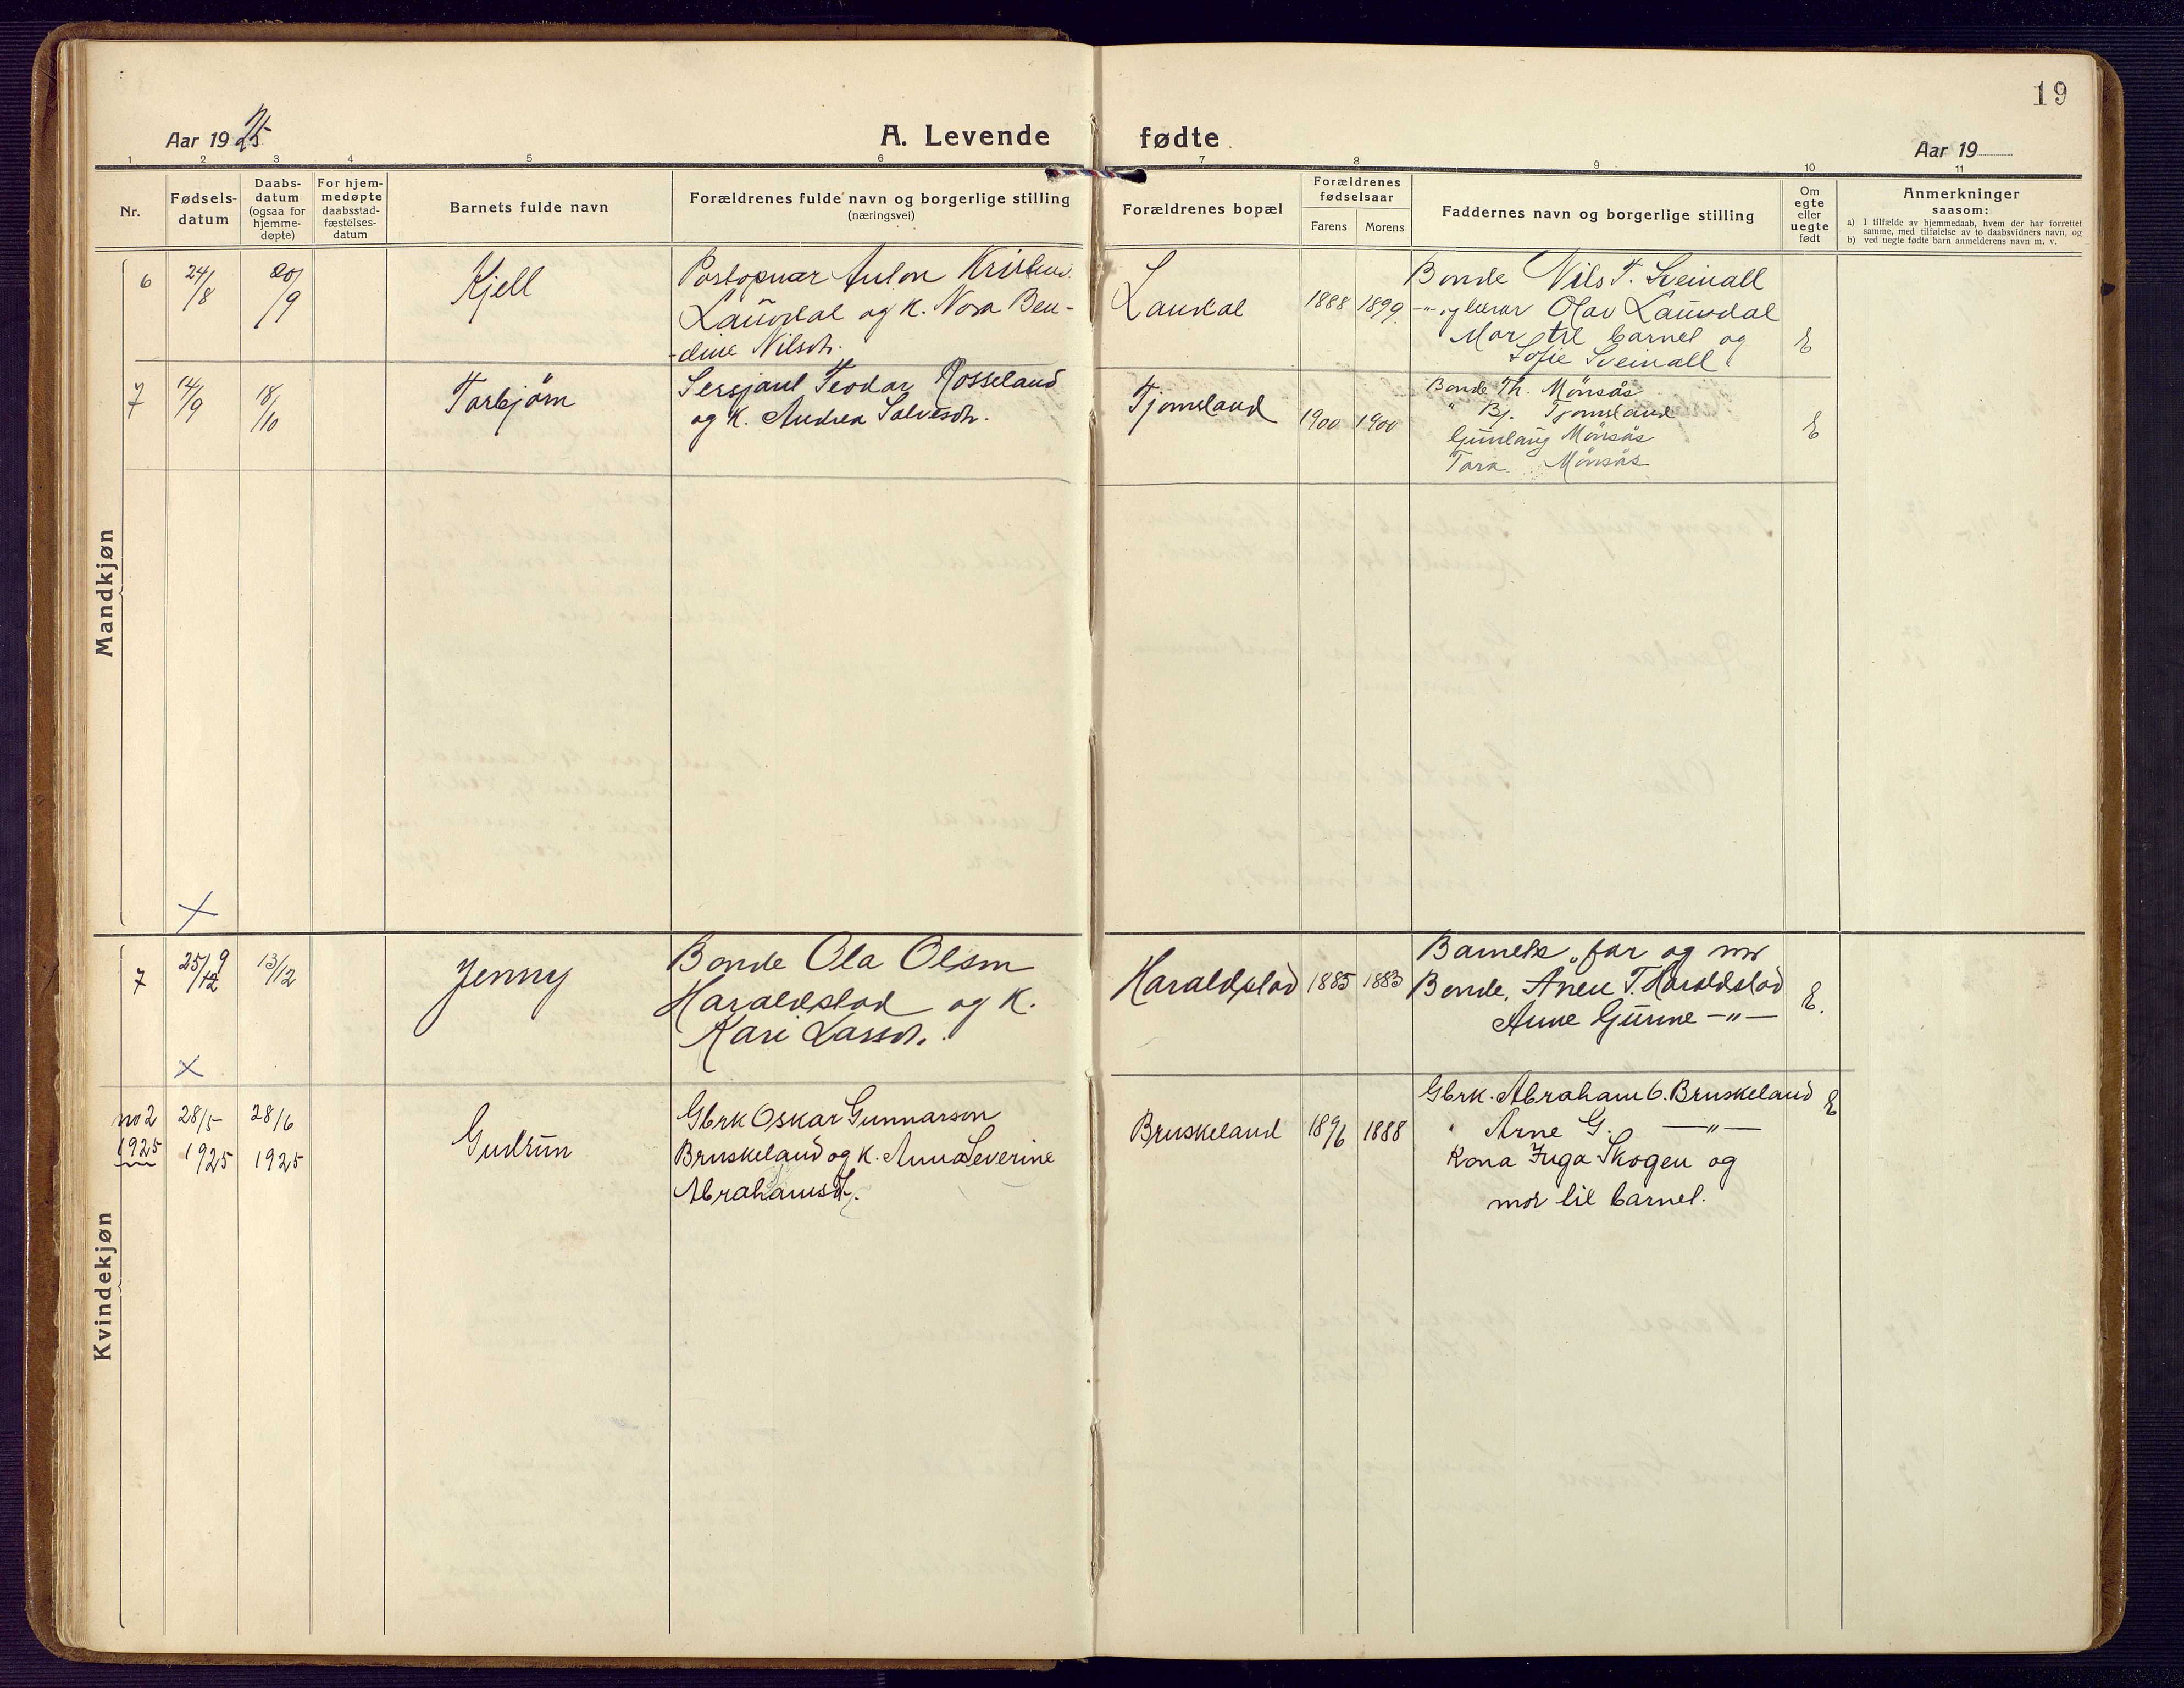 19
Aar 1925
A. Levende fødte
Aar 19
1 2 3 4 5 6 7 8 9 10 11
Nr.
Fødsels-
datum
Daabs-
datum
(ogsaa for
hjemme-
døpte)
For hjem-
medøpte
daabsstad-
fæstelses-
datum
Barnets fulde navn
Forældrenes fulde navn og borgerlige stilling
(næringsvei)
Forældrenes bopæl
Forældrenes
fødselsaar
Farens Morens
Faddernes navn og borgerlige stilling
Om
egte
eller
uegte
født
Anmerkninger
saasom:
a) I tilfælde av hjemmedaab, hvem der har forrettet
samme, med tilføielse av to daabsvidners navn, og
b) ved uegte fødte barn anmelderens navn m. v.
Mandkjøn
6 24/8 20/9 Kjell
Anton
Lauvdal og K. Nora Ben-
-dine Nilsdtr.
Laudal 1888 1899
Bonde Nils T. Sveinall
Olav Lauvdal
Mor til barnet og
Sofie Sveinall
E
7 14/9 18/10 Torbjörn
Sersjant Teodor Rosseland
og K. Andrea Salvesdtr.
Tjomsland 1900 1900
Bonde Th. Mönsås
" Bj. Tjomsland
Gunlaug Mönsås
Tora Mönsås
E
x
Kvindekjøn
7 25/9 13/12 Jenny
Bonde Ola Olsen
Haraldstad og K.
Kari Larsdtr.
Haraldstad 1885 1883
Barnets far og mor
Bonde T. Haraldstad
Anne Gurine -"-
E.
x
no 2 28/5 28/6
1925 1925 1925
Gudrun
Gbrk Oskar Gunnarson
Bruskeland og K. Anna Severine
Abrahamsdt.
Bruskeland 1896 1888
Gbrk. Abraham G. Bruskeland
" Arne G. -"-
Kona Inga Skogen og
mor til barnet.
E